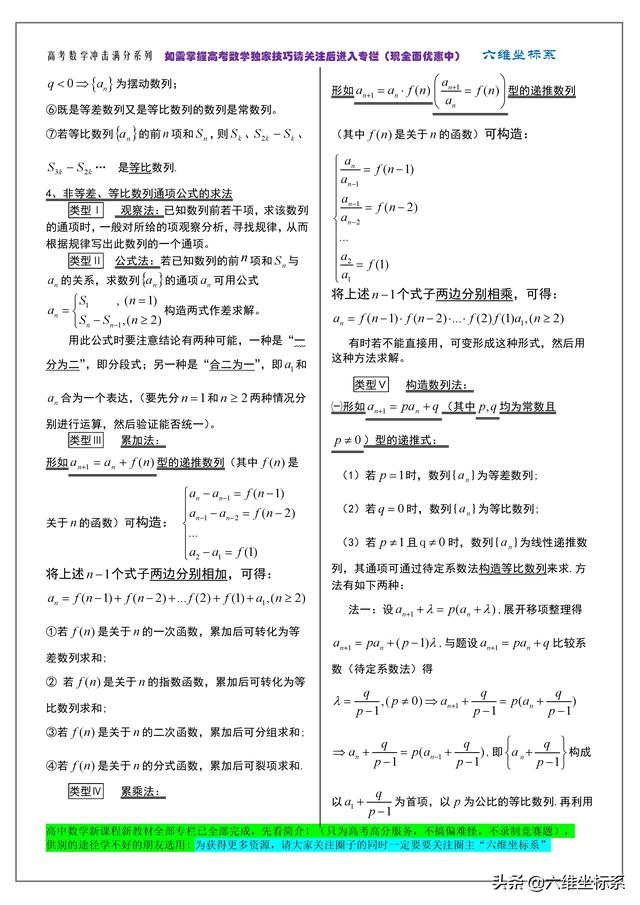 高考数学冲击满分系列 如需掌握高考数学独家技巧请关注后进入专栏（现全面优惠中） 六维坐标系
q < 0 ⇒ {a_n} 为摆动数列；
⑥既是等差数列又是等比数列的数列是常数列。
⑦若等比数列{a_n}的前n项和S_n，则S_k、S_{2k} − S_k、
S_{3k} − S_{2k} … 是等比数列.
4、非等差、等比数列通项公式的求法
类型Ⅰ 观察法：已知数列前若干项，求该数列
的通项时，一般对所给的项观察分析，寻找规律，从而
根据规律写出此数列的一个通项。
类型Ⅱ 公式法：若已知数列的前n项和S_n与
a_n的关系，求数列{a_n}的通项a_n可用公式
a_n = { S_1 , (n = 1)
S_n − S_{n−1},(n ≥ 2) 构造两式作差求解。
用此公式时要注意结论有两种可能，一种是“一
分为二”，即分段式；另一种是“合二为一”，即a_1和
a_n合为一个表达，（要先分n = 1和n ≥ 2两种情况分
别进行运算，然后验证能否统一）。
类型Ⅲ 累加法：
形如a_{n+1} = a_n + f(n)型的递推数列（其中f(n)是
关于n的函数）可构造：
{ a_n − a_{n−1} = f(n−1)
a_{n−1} − a_{n−2} = f(n−2)
...
a_2 − a_1 = f(1)
将上述n−1个式子两边分别相加，可得：
a_n = f(n−1) + f(n−2) + ...f(2) + f(1) + a_1,(n ≥ 2)
①若f(n)是关于n的一次函数，累加后可转化为等
差数列求和；
② 若f(n)是关于n的指数函数，累加后可转化为等
比数列求和；
③若f(n)是关于n的二次函数，累加后可分组求和；
④若f(n)是关于n的分式函数，累加后可裂项求和.
类型Ⅳ 累乘法：
形如a_{n+1} = a_n · f(n) (a_{n+1}/a_n = f(n))型的递推数列
（其中f(n)是关于n的函数）可构造：
{ a_n/a_{n−1} = f(n−1)
a_{n−1}/a_{n−2} = f(n−2)
...
a_2/a_1 = f(1)
将上述n−1个式子两边分别相乘，可得：
a_n = f(n−1)·f(n−2)·...·f(2)f(1)a_1,(n ≥ 2)
有时若不能直接用，可变形成这种形式，然后用
这种方法求解。
类型Ⅴ 构造数列法：
㈠形如a_{n+1} = pa_n + q（其中p,q均为常数且
p ≠ 0）型的递推式：
（1）若p = 1时，数列{a_n}为等差数列;
（2）若q = 0时，数列{a_n}为等比数列;
（3）若p ≠ 1且q ≠ 0时，数列{a_n}为线性递推数
列，其通项可通过待定系数法构造等比数列来求.方
法有如下两种：
法一：设a_{n+1} + λ = p(a_n + λ),展开移项整理得
a_{n+1} = pa_n + (p−1)λ,与题设a_{n+1} = pa_n + q比较系
数（待定系数法）得
λ = q/(p−1),(p ≠ 0) ⇒ a_{n+1} + q/(p−1) = p(a_n + q/(p−1))
⇒ a_n + q/(p−1) = p(a_{n−1} + q/(p−1)),即{a_n + q/(p−1)}构成
以a_1 + q/(p−1)为首项，以p为公比的等比数列.再利用
高中数学新课程新教材全部专栏已全部完成，先看简介！（只为高考高分服务，不搞偏难怪，不录制竞赛题），
供别的途径学不好的朋友选用！为获得更多资源，请大家关注圈子的同时一定要要关注圈主“六维坐标系”
头条 @六维坐标系